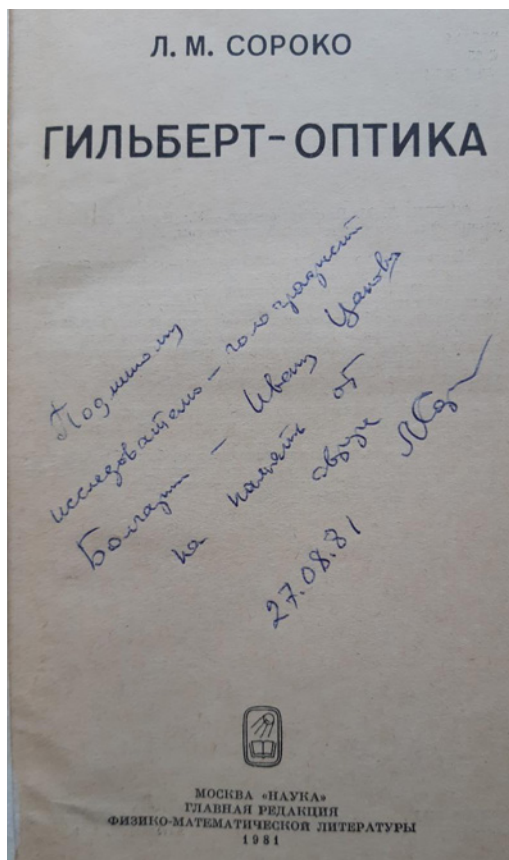 Л. М. СОРОКО
ГИЛЬБЕРТ-ОПТИКА
исследователю - голографисту
Болгарии - Ивану Цанову
на память от
27.08.81
МОСКВА «НАУКА»
ГЛАВНАЯ РЕДАКЦИЯ
ФИЗИКО-МАТЕМАТИЧЕСКОЙ ЛИТЕРАТУРЫ
1981